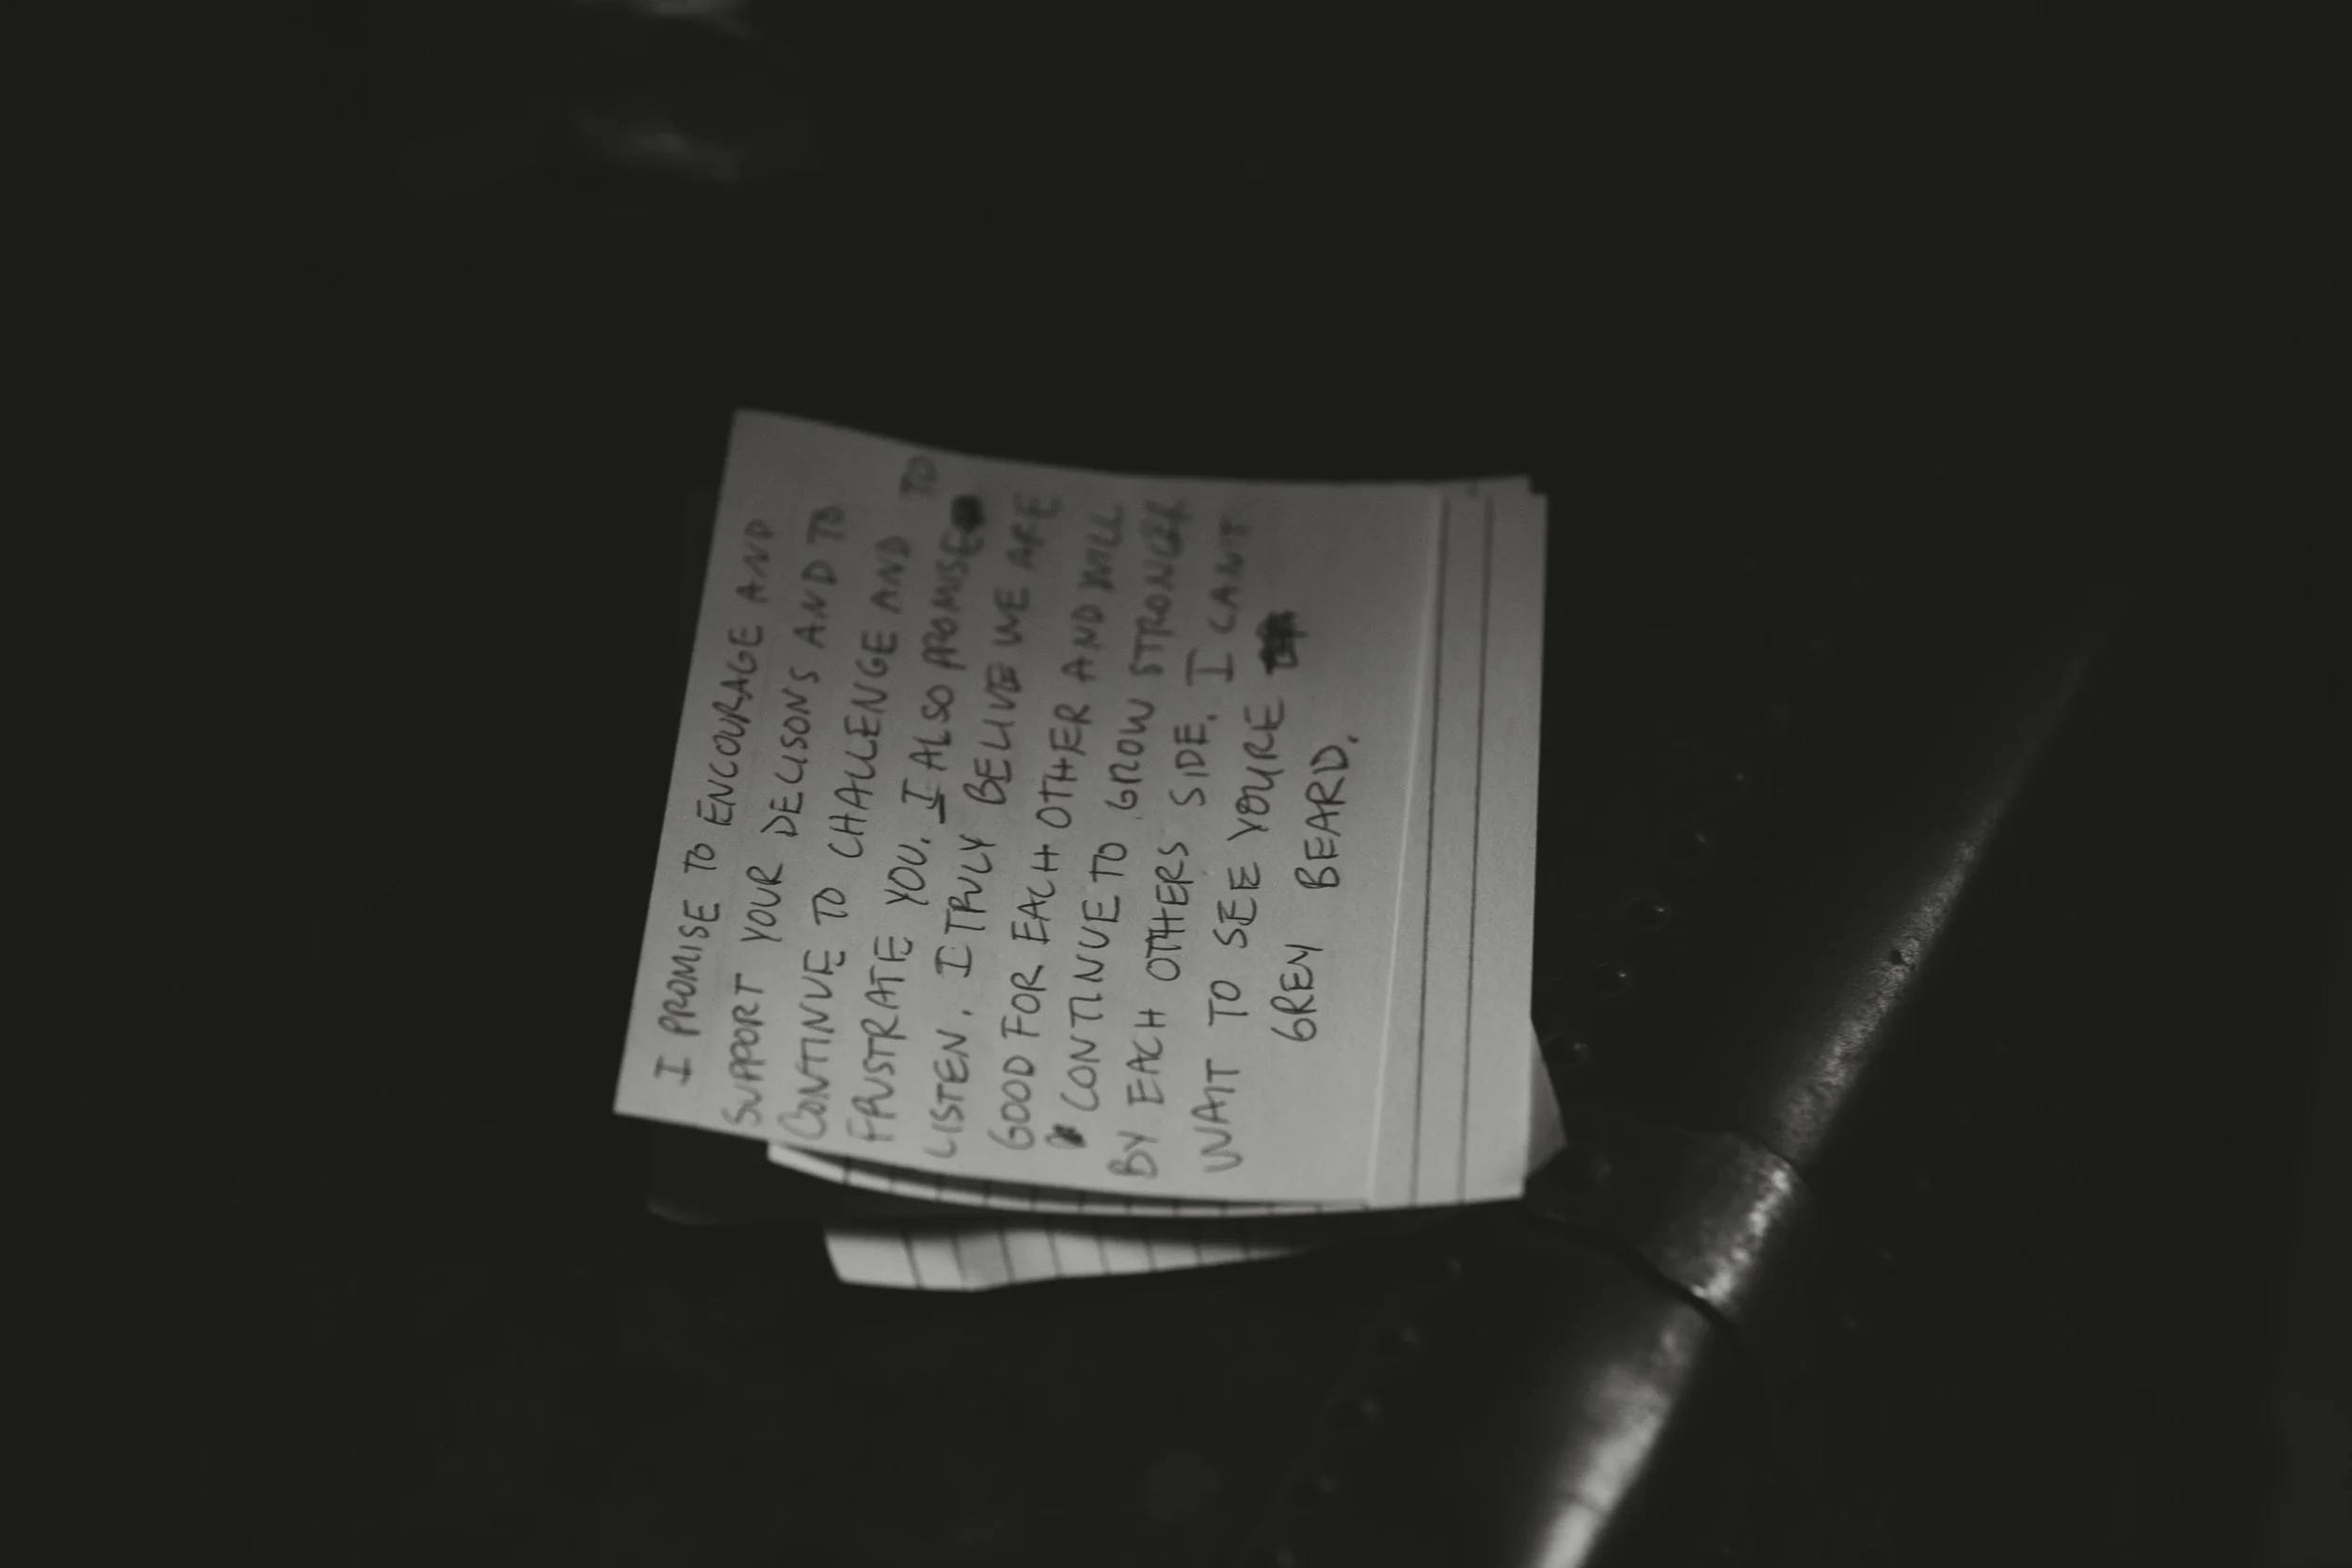 I PROMISE TO ENCOURAGE AND
SUPPORT YOUR DECISONS AND TO
CONTINUE TO CHALLENGE AND
FRUSTRATE YOU. I ALSO PROMISE TO
LISTEN. I TRULY BELIVE WE ARE
GOOD FOR EACH OTHER AND WILL
CONTINUE TO GROW STRONGER
BY EACH OTHERS SIDE. I CANT
WAIT TO SEE YOURE
GREY BEARD.